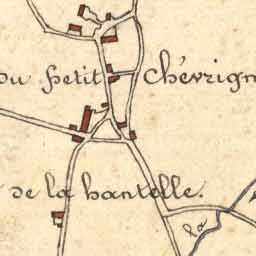 du Petit Chévrign
de la hantelle.